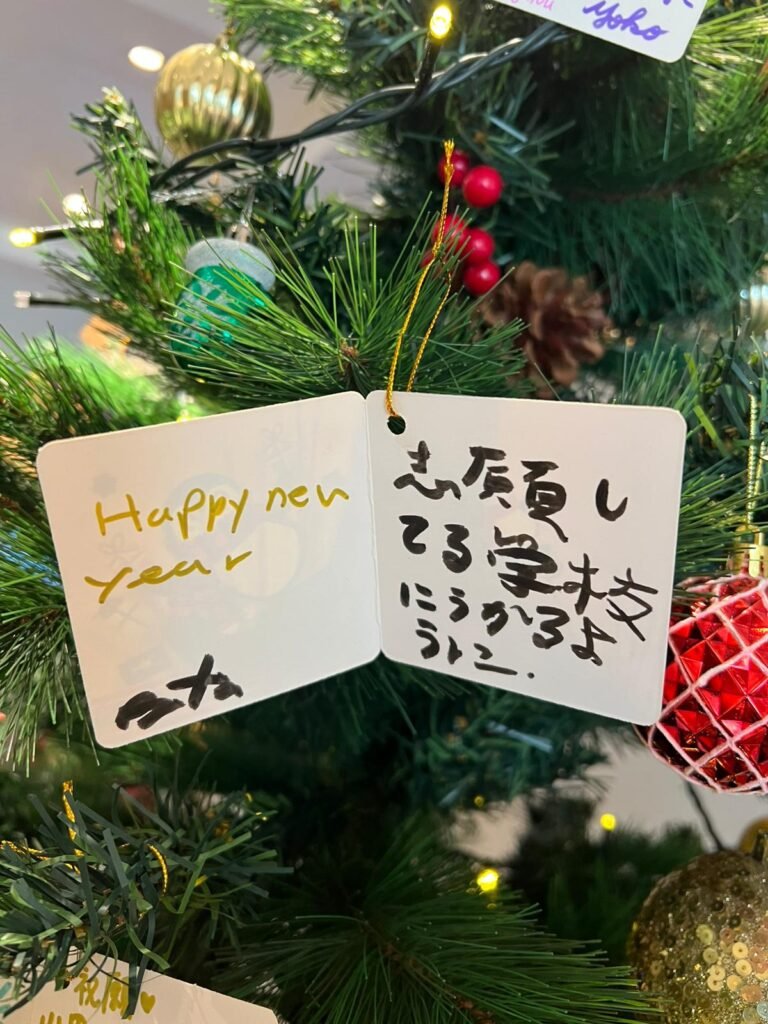 Yoko
Happy new
year
志願し
てる学校
にうかるよ
うに.
祝願